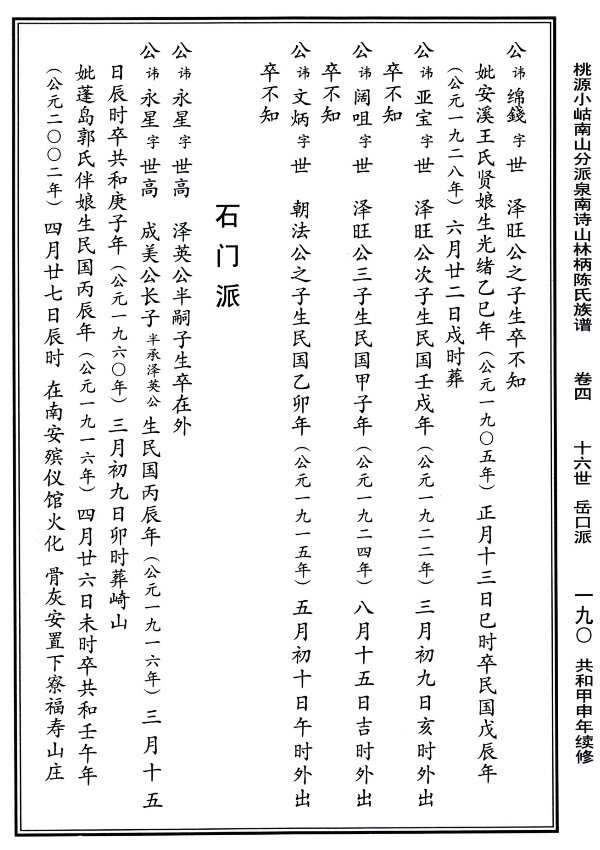 桃源小岵南山分派泉南诗山林柄陈氏族谱 卷四 十六世 岳口派 一九〇 共和甲申年续修
公讳绵錢字世 泽旺公之子生卒不知
妣安溪王氏贤娘生光绪乙巳年（公元一九〇五年）正月十三日巳时卒民国戊辰年
（公元一九二八年）六月廿二日戍时葬
公讳亚宝字世 泽旺公次子生民国壬戍年（公元一九二二年）三月初九日亥时外出
卒不知
公讳阔咀字世 泽旺公三子生民国甲子年（公元一九二四年）八月十五日吉时外出
卒不知
公讳文炳字世 朝法公之子生民国乙卯年（公元一九一五年）五月初十日午时外出
卒不知
石门派
公讳永星字世高 泽英公半嗣子生卒在外
公讳永星字世高 成美公长子半承泽英公生民国丙辰年（公元一九一六年）三月十五
日辰时卒共和庚子年（公元一九六〇年）三月初九日卯时葬崎山
妣蓬岛郭氏伴娘生民国丙辰年（公元一九一六年）四月廿六日未时卒共和壬午年
（公元二〇〇二年）四月廿七日辰时 在南安殡仪馆火化 骨灰安置下寮福寿山庄